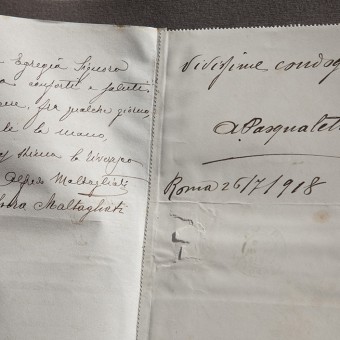 Egregia Signora
conforti e saluti,
fra qualche giorno,
le la mano,
stima la riverisco
Alfea Maltagliati
Maltagliati
Vivissime condog
A. Pasqualet
Roma 26/7/918